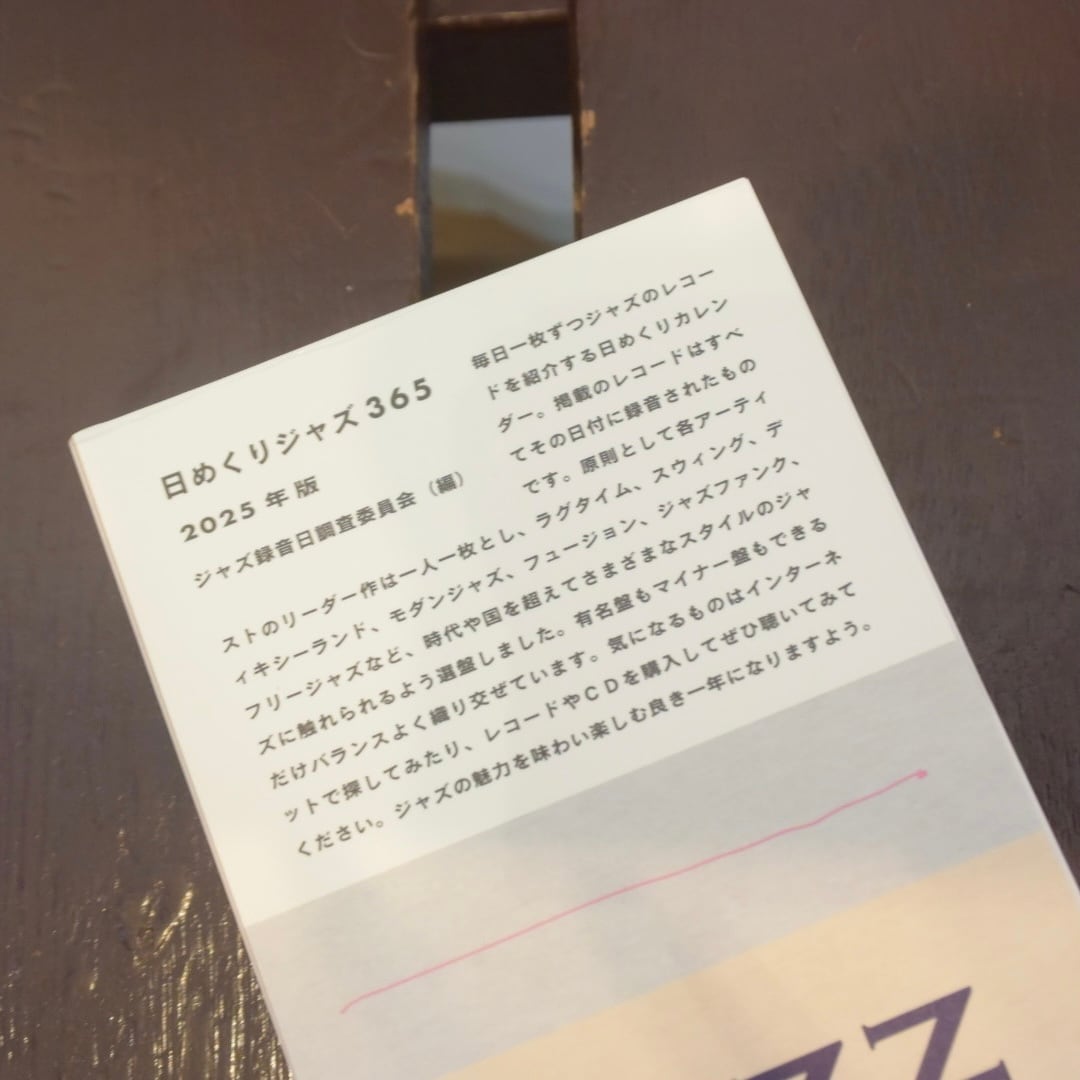 日めくりジャズ 365
2025 年 版
ジャズ録音日調査委員会（編）
毎日一枚ずつジャズのレコー
ドを紹介する日めくりカレン
ダー。掲載のレコードはすべ
てその日付に録音されたもの
です。原則として各アーティ
ストのリーダー作は一人一枚とし、ラグタイム、スウィング、デ
ィキシーランド、モダンジャズ、フュージョン、ジャズファンク、
フリージャズなど、時代や国を超えてさまざまなスタイルのジャ
ズに触れられるよう選盤しました。有名盤もマイナー盤もできる
だけバランスよく織り交ぜています。気になるものはインターネ
ットで探してみたり、レコードやＣＤを購入してぜひ聴いてみて
ください。ジャズの魅力を味わい楽しむ良き一年になりますよう。